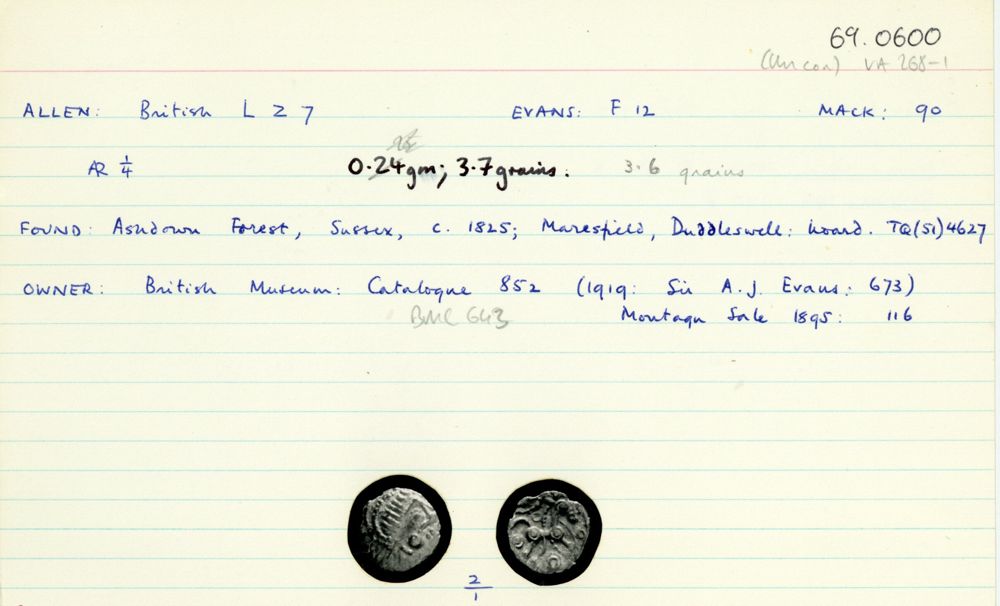 69.0600
(Uncon) VA 268-1
ALLEN: British L Z 7 EVANS: F 12 MACK: 90
AR 1/4 0.24gm; 3.7grains. 3.6 grains
FOUND: Ashdown Forest, Sussex, c. 1825; Maresfield, Duddleswell: hoard. TQ(51)4627
OWNER: British Museum: Catalogue 852 (1919: Sir A.J. Evans: 673)
BMC 643 Montagu Sale 1895: 116
2/1